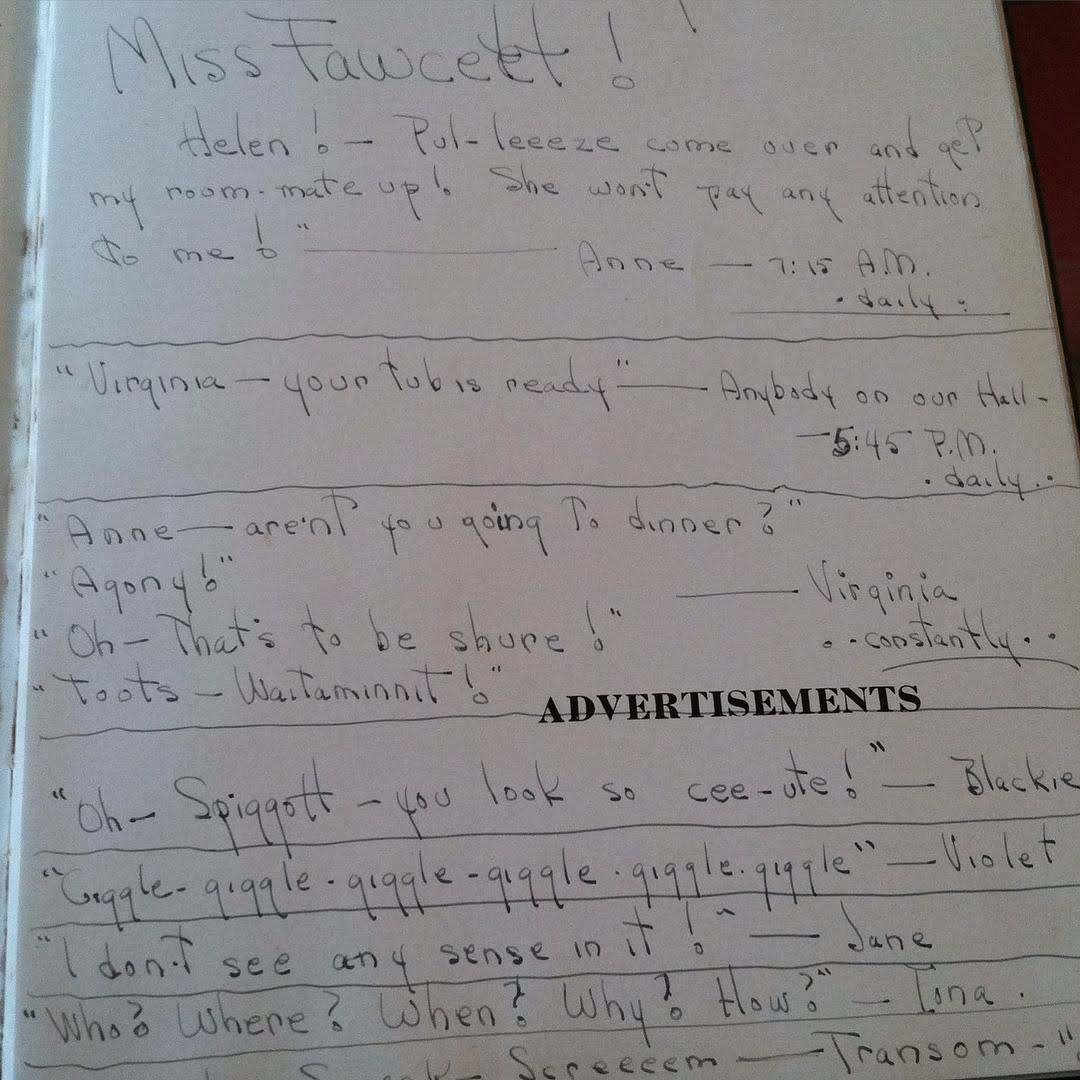 Miss Fawcett!
Helen! – Pul-leeeze come over and get
my room-mate up! She won't pay any attention
to me!" — Anne — 7:15 A.M.
. daily .
"Virginia – your tub is ready" — Anybody on our Hall -
— 5:45 P.M.
. daily . .
"Anne — aren't you going to dinner?"
"Agony!"
— Virginia
"Oh – That's to be shure!"
. . constantly . .
"Toots – Waitaminnit!"
ADVERTISEMENTS
"Oh – Spiggott – you look so cee-ute!" — Blackie
"Giggle - giggle - giggle - giggle . giggle . giggle" — Violet
"I don't see any sense in it!" — Jane
"Who? Where? When? Why? How?" — Tona .
Screeeem — Transom - "